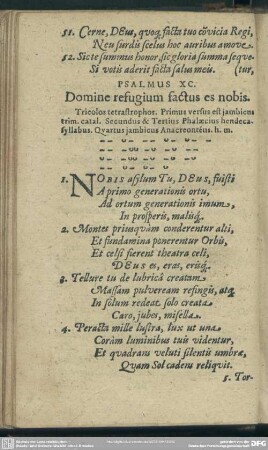 51. Cerne, DEus, quoq, facta tuo cōvicia Regi,
Neu surdis scelus hoc auribus amove.
52. Sic te summus honor, sic gloria summa seque-
Si votis aderit facta salus meis. (tur,
PSALMUS XC.
Domine refugium factus es nobis.
Tricolos tetrastrophos. Primus versus est jambicus
trim. catal. Secundus & Tertius Phalæcius hendeca-
syllabus. Qvartus jambicus Anacreontéus. h. m.
1. NOBIS asylum Tu, DEus, fuisti
A primo generationis ortu,
Ad ortum generationis imum,
In prosperis, malisq.
2. Montes priusquàm conderentur alti,
Et fundamina ponerentur Orbis,
Et celsi fierent theatra celi,
DEus es, eras, erisq.
3. Tellure tu de lubricâ creatam
Massam pulveream refingis, atq
In solum redeat solo creata
Caro, jubes, misella.
4. Peracta mille lustra, lux ut una
Coràm luminibus tuis videntur,
Et quadrans veluti silentis umbræ,
Qvam Sol cadens reliqvit.
5. Tor-